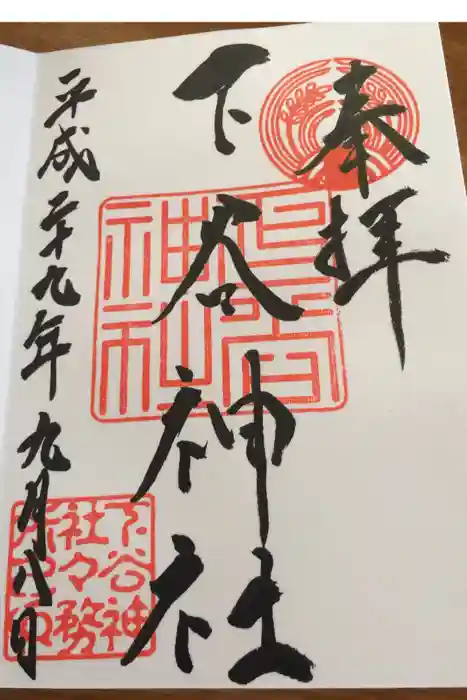 奉拝
下谷神社
平成二十九年九月八日
下谷神
社々務